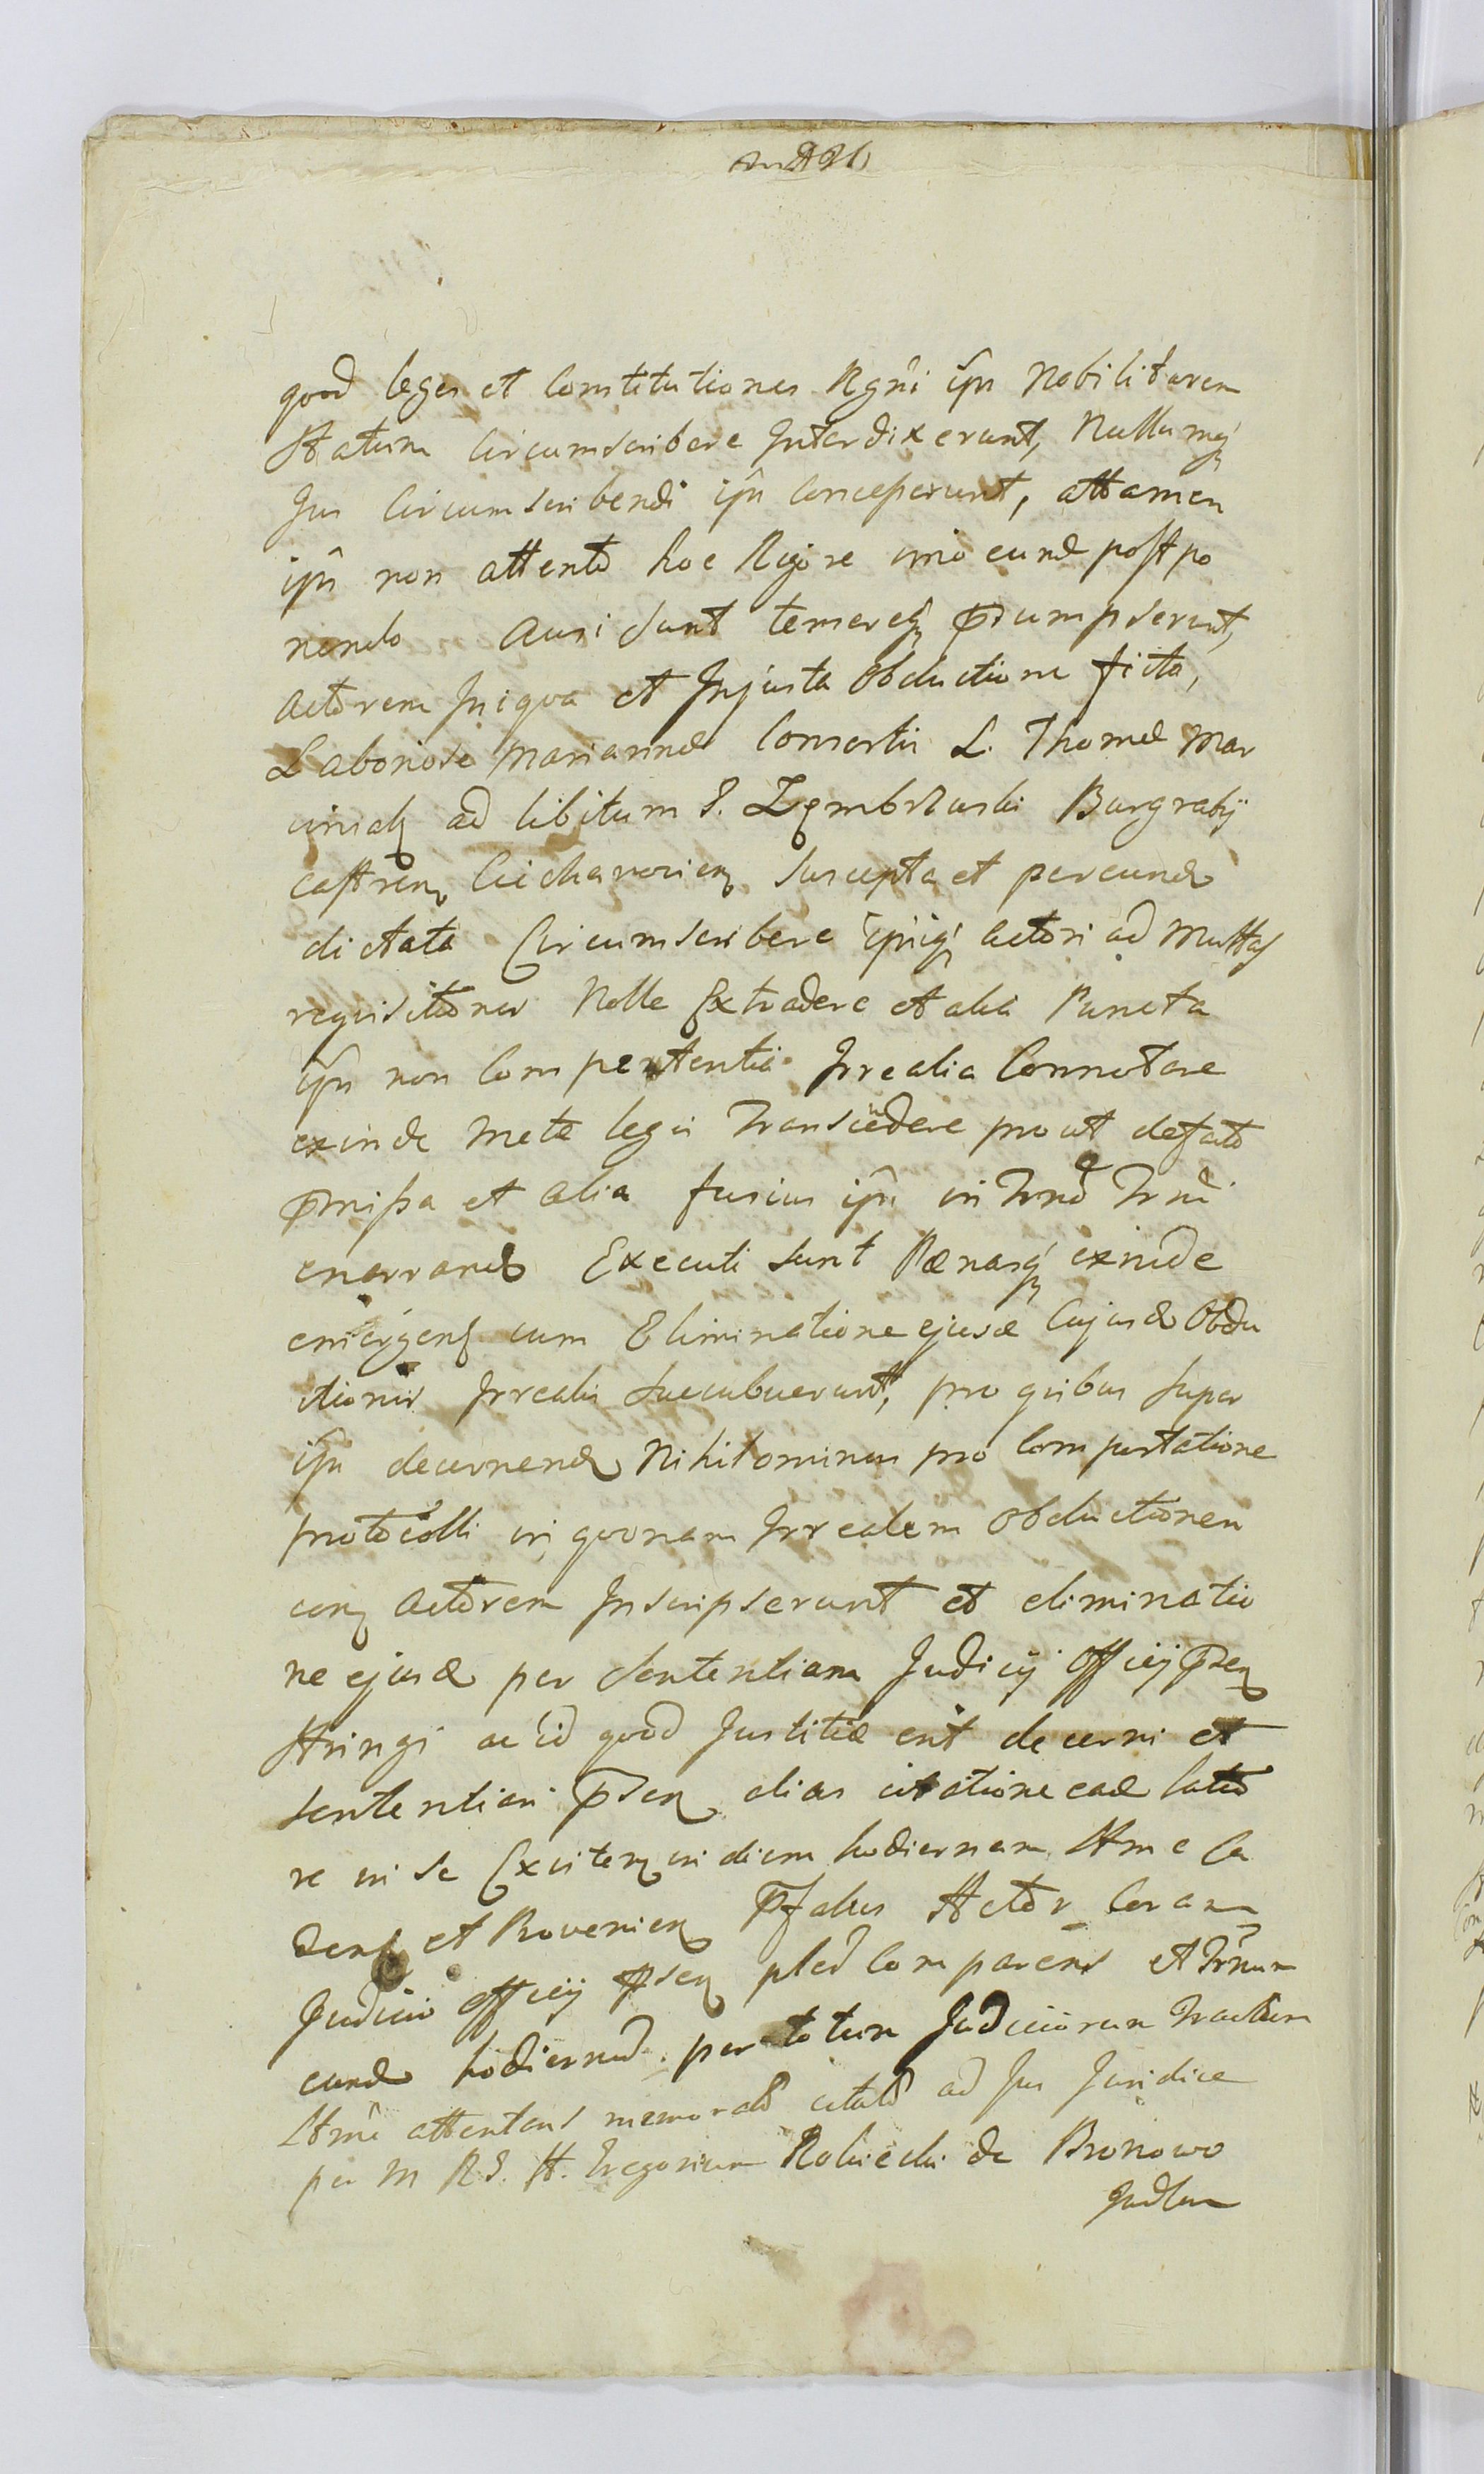 quod leges et Constitutiones Rgni ipis Nobilitarem
Statum Circumscribere Interdixerunt, Nullumq
Jus Circumscribendi ipis Conceperunt, attamen
ipi non attento hoc Rigore imo eund postpo
nendo Ausi sunt temereq praesumpserunt,
Actorem Iniqua et Injusta Obductione ficta,
Laboriose Marianne Consortis L. Thomae Mar
ciniak ad libitum G. Zembrzuski Burgrabij
castren suscepta et per eund
dictata Circumscribere ipsiq Actori ad Multas
requisitiones Nolle Extradere et alia Puncta
ipis non Competentia Irrealia Connotare
exinde Metae legis Transcendere prout de facto
pmissa et alia fusius ipis in Trno Trni
enarrand Executi sunt Paenasq exinde
emergens cum Eliminatione ejusd Cujusd Obdu
ctionis Irrealis Succubuerunt, pro quibus super
ipis decernend Nihilominus pro Comportatione
protocolli in quonam Irrealem Obductionem
con Actorem Inscripserunt et eliminatio
ne ejusd per Sententiam Judicij Officij psen
stringi ac id quod Justitiae erit decerni et
sententiari psen alias citatione ead latio
re in se Exciten in diem hodiernam Ittme Ca
dens et Provenien Pfatus Actor Coram
Judicio Officij psen psld Comparens et Trnum
eund hodiernum per totum Judiciorum Tractum
Ittme attentans memorato citato ad Jus Juridice
per M R G. H. Gregorium Robiecki de Bronowo
Judlum